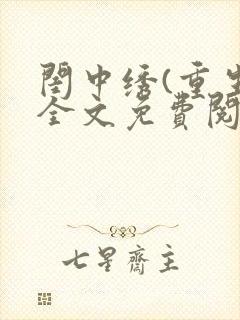 閨中绣(重生
全文免費閱
七星齋主